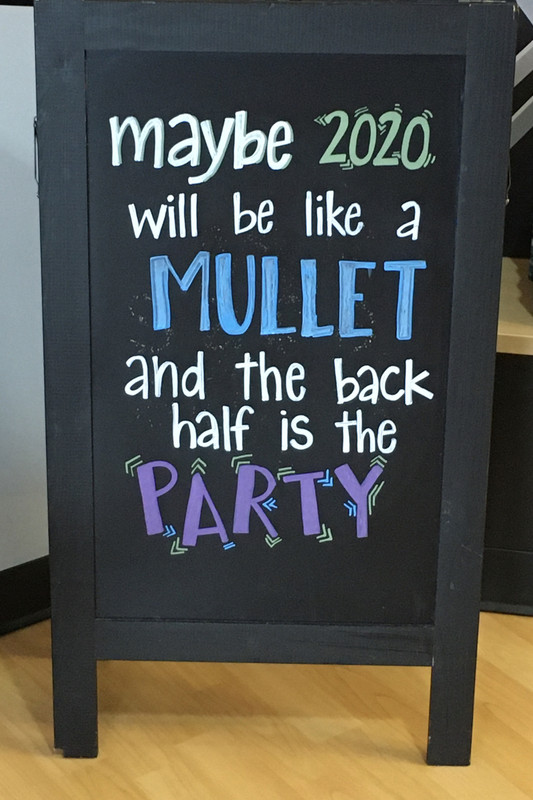 maybe 2020
will be like a
MULLET
and the back
half is the
PARTY